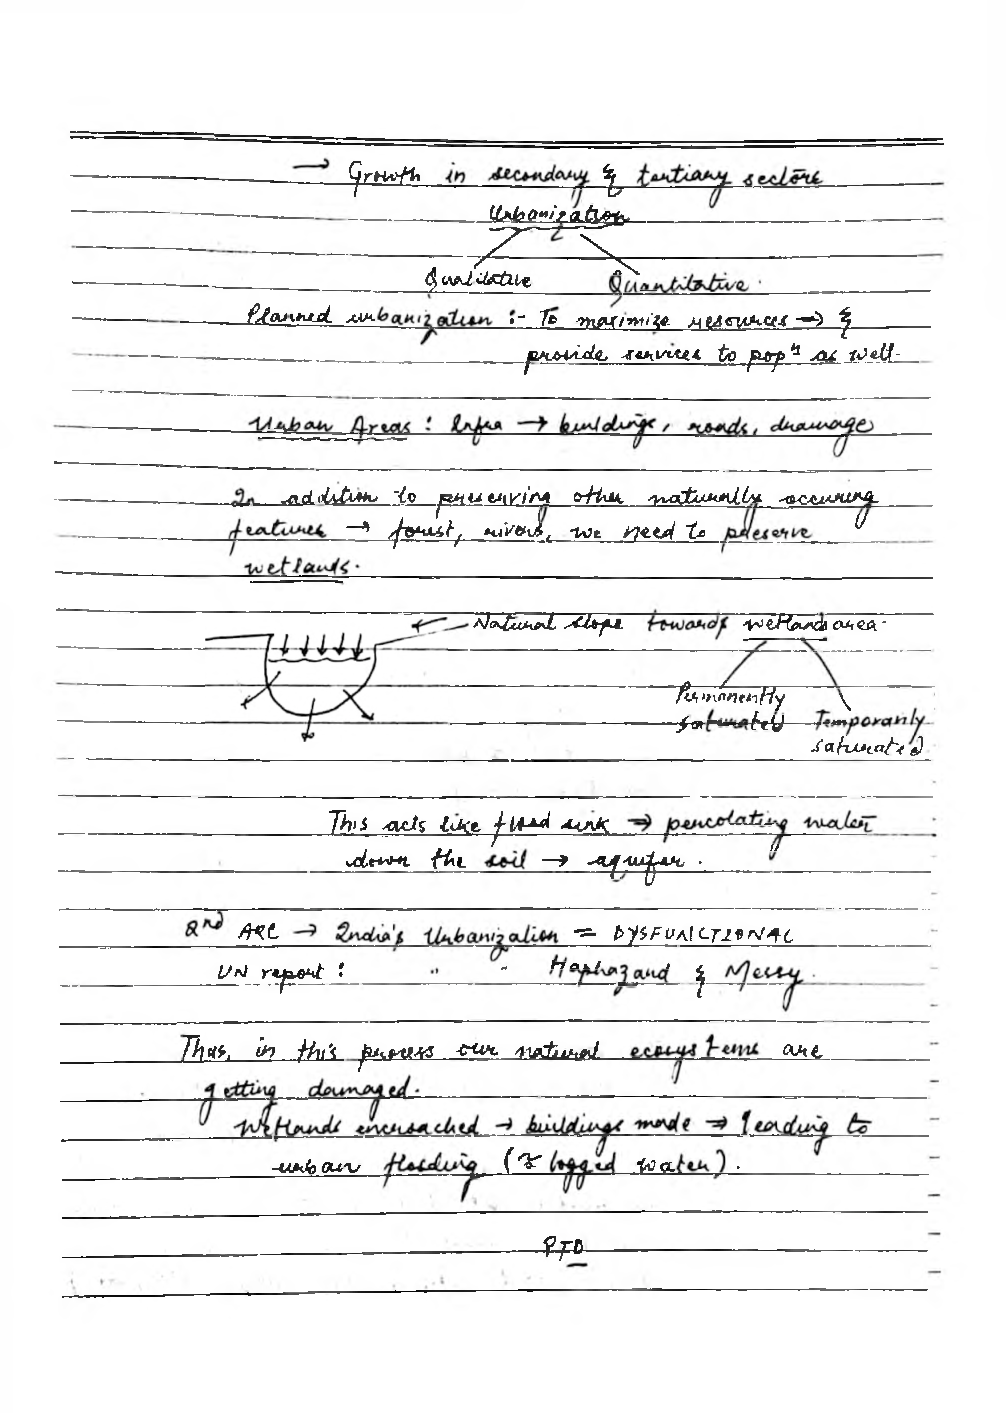 → Growth in secondary & tertiary sectors
Urbanization
Qualitative Quantitative.
Planned urbanization :- To maximize resources → &
provide services to popⁿ as well.
Urban Areas : Infra → buildings, roads, drainage
In addition to preserving other naturally occuring
features → forest, rivers, we need to preserve
wetlands.
← Natural slope towards wetlands area.
Permanently
saturated Temporarily
saturated
This acts like flood sink ⇒ percolating water
down the soil → aquifer.
2nd ARC → India's Urbanization = DYSFUNCTIONAL
UN report : " " Haphazard & Messy.
Thus, in this process our natural ecosystems are
getting damaged.
Wetlands encroached → buildings made ⇒ leading to
urban flooding ( logged water).
PTO